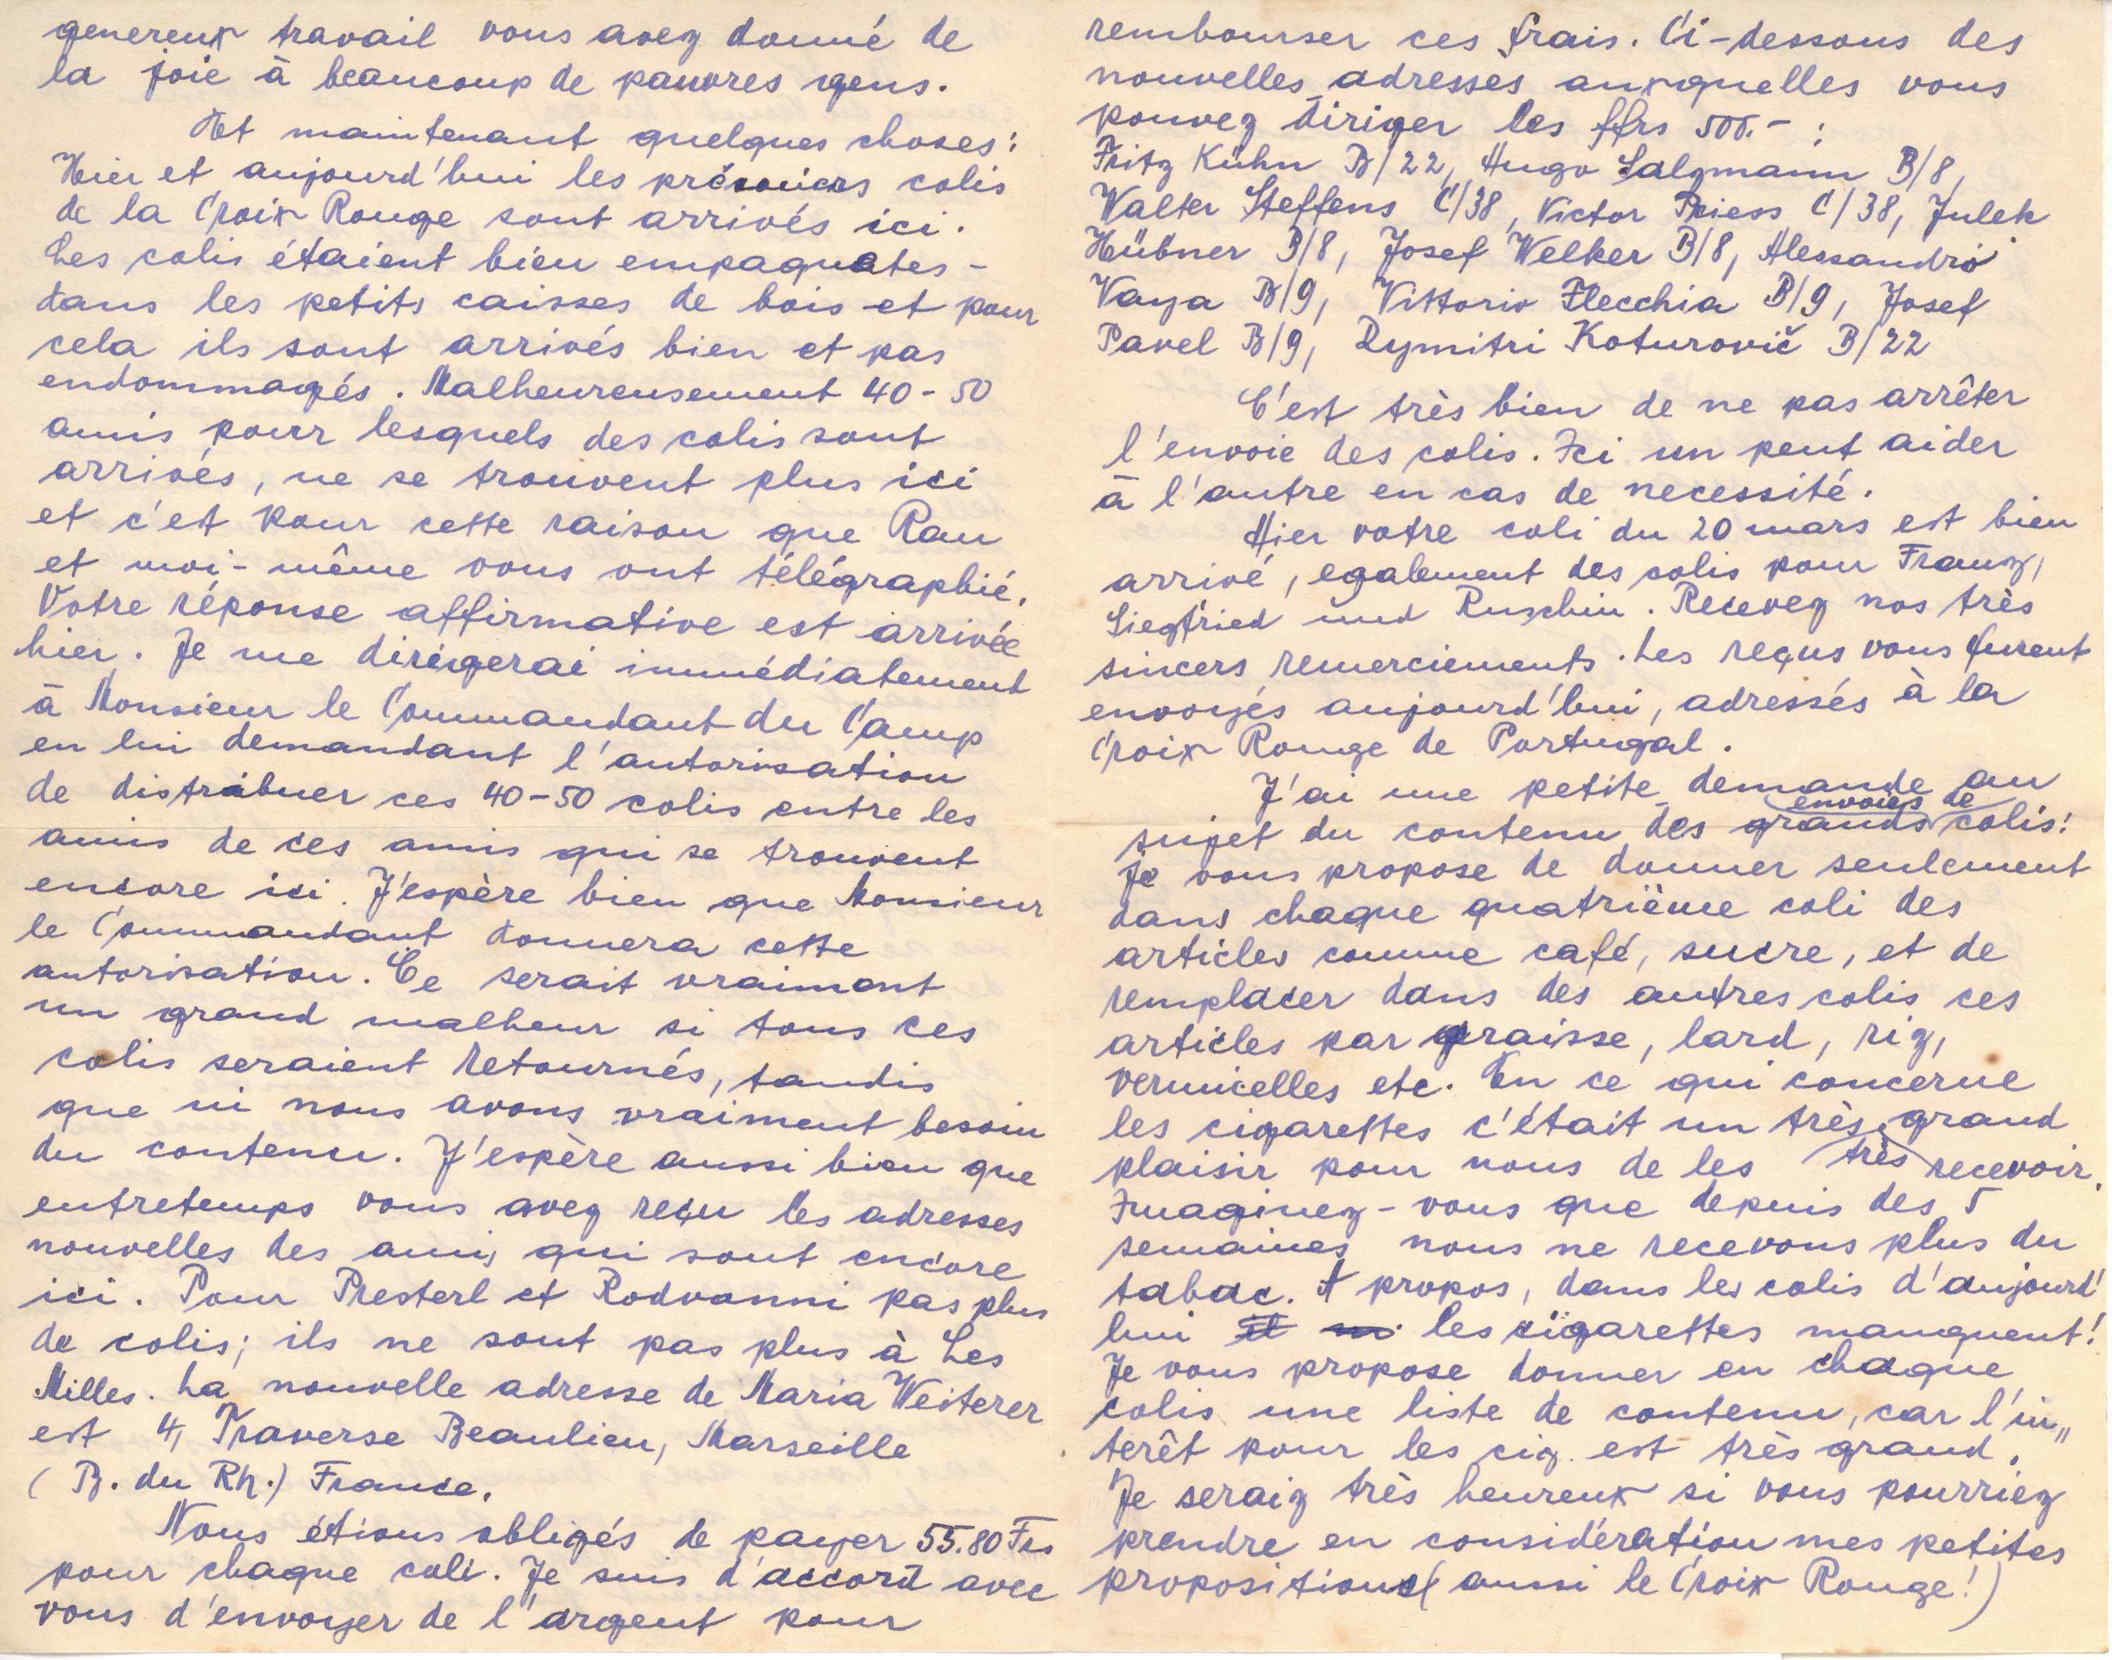 genereux travail vous avez donné de
la joie à beaucoup de pauvres gens.
Et maintenant quelques choses:
Hier et aujourd'hui les premiers colis
de la Croix Rouge sont arrivés ici.
Les colis étaient bien empaquates -
dans les petits caisses de bois et pour
cela ils sont arrivés bien et pas
endommagés. Malheureusement 40-50
amis pour lesquels des colis sont
arrivés, ne se trouvent plus ici
et c'est pour cette raison que Rau
et moi-même vous ont télégraphié.
Votre réponse affirmative est arrivée
hier. Je me dirigerai immédiatement
à Monsieur le Commandant du Camp
en lui demandant l'autorisation
de distribuer ces 40-50 colis entre les
amis de ces amis qui se trouvent
encore ici. J'espère bien que Monsieur
le Commandant donnera cette
autorisation. Ce serait vraimont
un grand malheur si tous ces
colis seraient retournés, tandis
que ici nous avons vraiment besoin
du contenu. J'espère aussi bien que
entretemps vous avez reçu les adresses
nouvelles des amis qui sont encore
ici. Pour Presterl et Rodvanni pas plus
de colis; ils ne sont pas plus à Les
Milles. La nouvelle adresse de Maria Weiterer
est 4, Traverse Beaulieu, Marseille
(B. du Rh.) France.
Nous étions obligés de payer 55.80 Frs
pour chaque coli. Je suis d'accord avec
vous d'envoyer de l'argent pour
rembourser ces frais. Ci-dessous des
nouvelles adresses auxquelles vous
pouvez diriger les ffrs 500.- :
Fritz Kühn B/22, Hugo Salzmann B/8,
Walter Steffens C/38, Victor Priess C/38, Julek
Hübner B/8, Josef Welker B/8, Alessandro
Vaya B/9, Vittorio Flecchia B/9, Josef
Pavel B/9, Dymitri Koturovič B/22
C'est très bien de ne pas arrêter
l'envoie des colis. Ici un peut aider
à l'autre en cas de necessité.
Hier votre coli du 20 mars est bien
arrivé, egalement des colis pour Franz,
Siegfried und Ruschin. Recevez nos très
sincers remerciements. Les reçus vous furent
envoyés aujourd'hui, adressés à la
Croix Rouge de Portugal.
J'ai une petite demande au
sujet du contenu des grands envoies de colis:
Je vous propose de donner seulement
dans chaque quatrième coli des
articles comme café, sucre, et de
remplacer dans des autres colis ces
articles par graisse, lard, riz,
vermicelles etc. En ce qui concerne
les cigarettes c'était un très, très grand
plaisir pour nous de les recevoir.
Imaginez-vous que depuis des 5
semaines nous ne recevons plus du
tabac. A propos, dans les colis d'aujourd'
hui il les cigarettes manquent!
Je vous propose donner en chaque
colis une liste de contenu, car l'in„
terêt pour les cig. est très grand.
Je seraiz très heureux si vous pourriez
prendre en considération mes petites
propositions (aussi le Croix Rouge!)